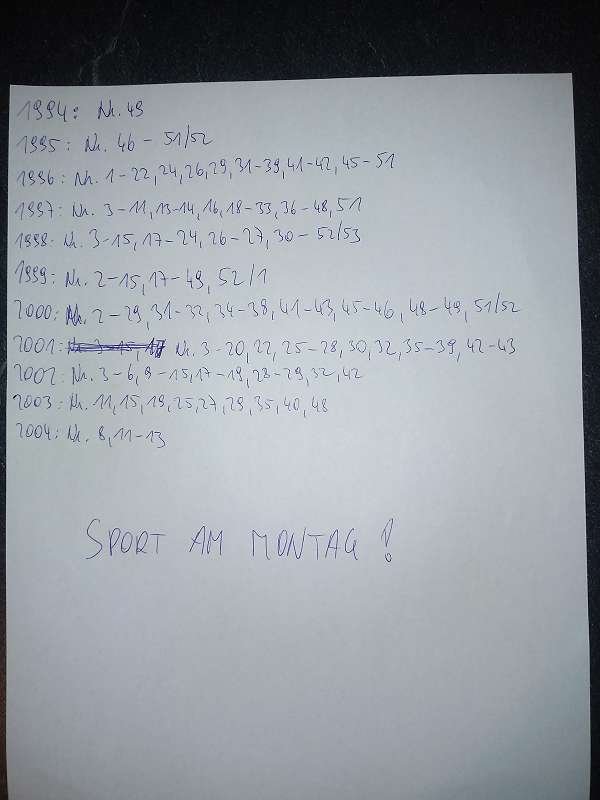 1994: Nr. 49
1995: Nr. 46 - 51/52
1996: Nr. 1-22, 24, 26, 29, 31-39, 41-42, 45-51
1997: Nr. 3-11, 13-14, 16, 18-33, 36-48, 51
1998: Nr. 3-15, 17-24, 26-27, 30-52/53
1999: Nr. 2-15, 17-49, 52/1
2000: Nr. 2-29, 31-32, 34-38, 41-43, 45-46, 48-49, 51/52
2001: Nr. 3-20, 22, 25-28, 30, 32, 35-39, 42-43
2002: Nr. 3-6, 9-15, 17-19, 28-29, 32, 42
2003: Nr. 11, 15, 19, 25, 27, 29, 35, 40, 48
2004: Nr. 8, 11-13
SPORT AM MONTAG!